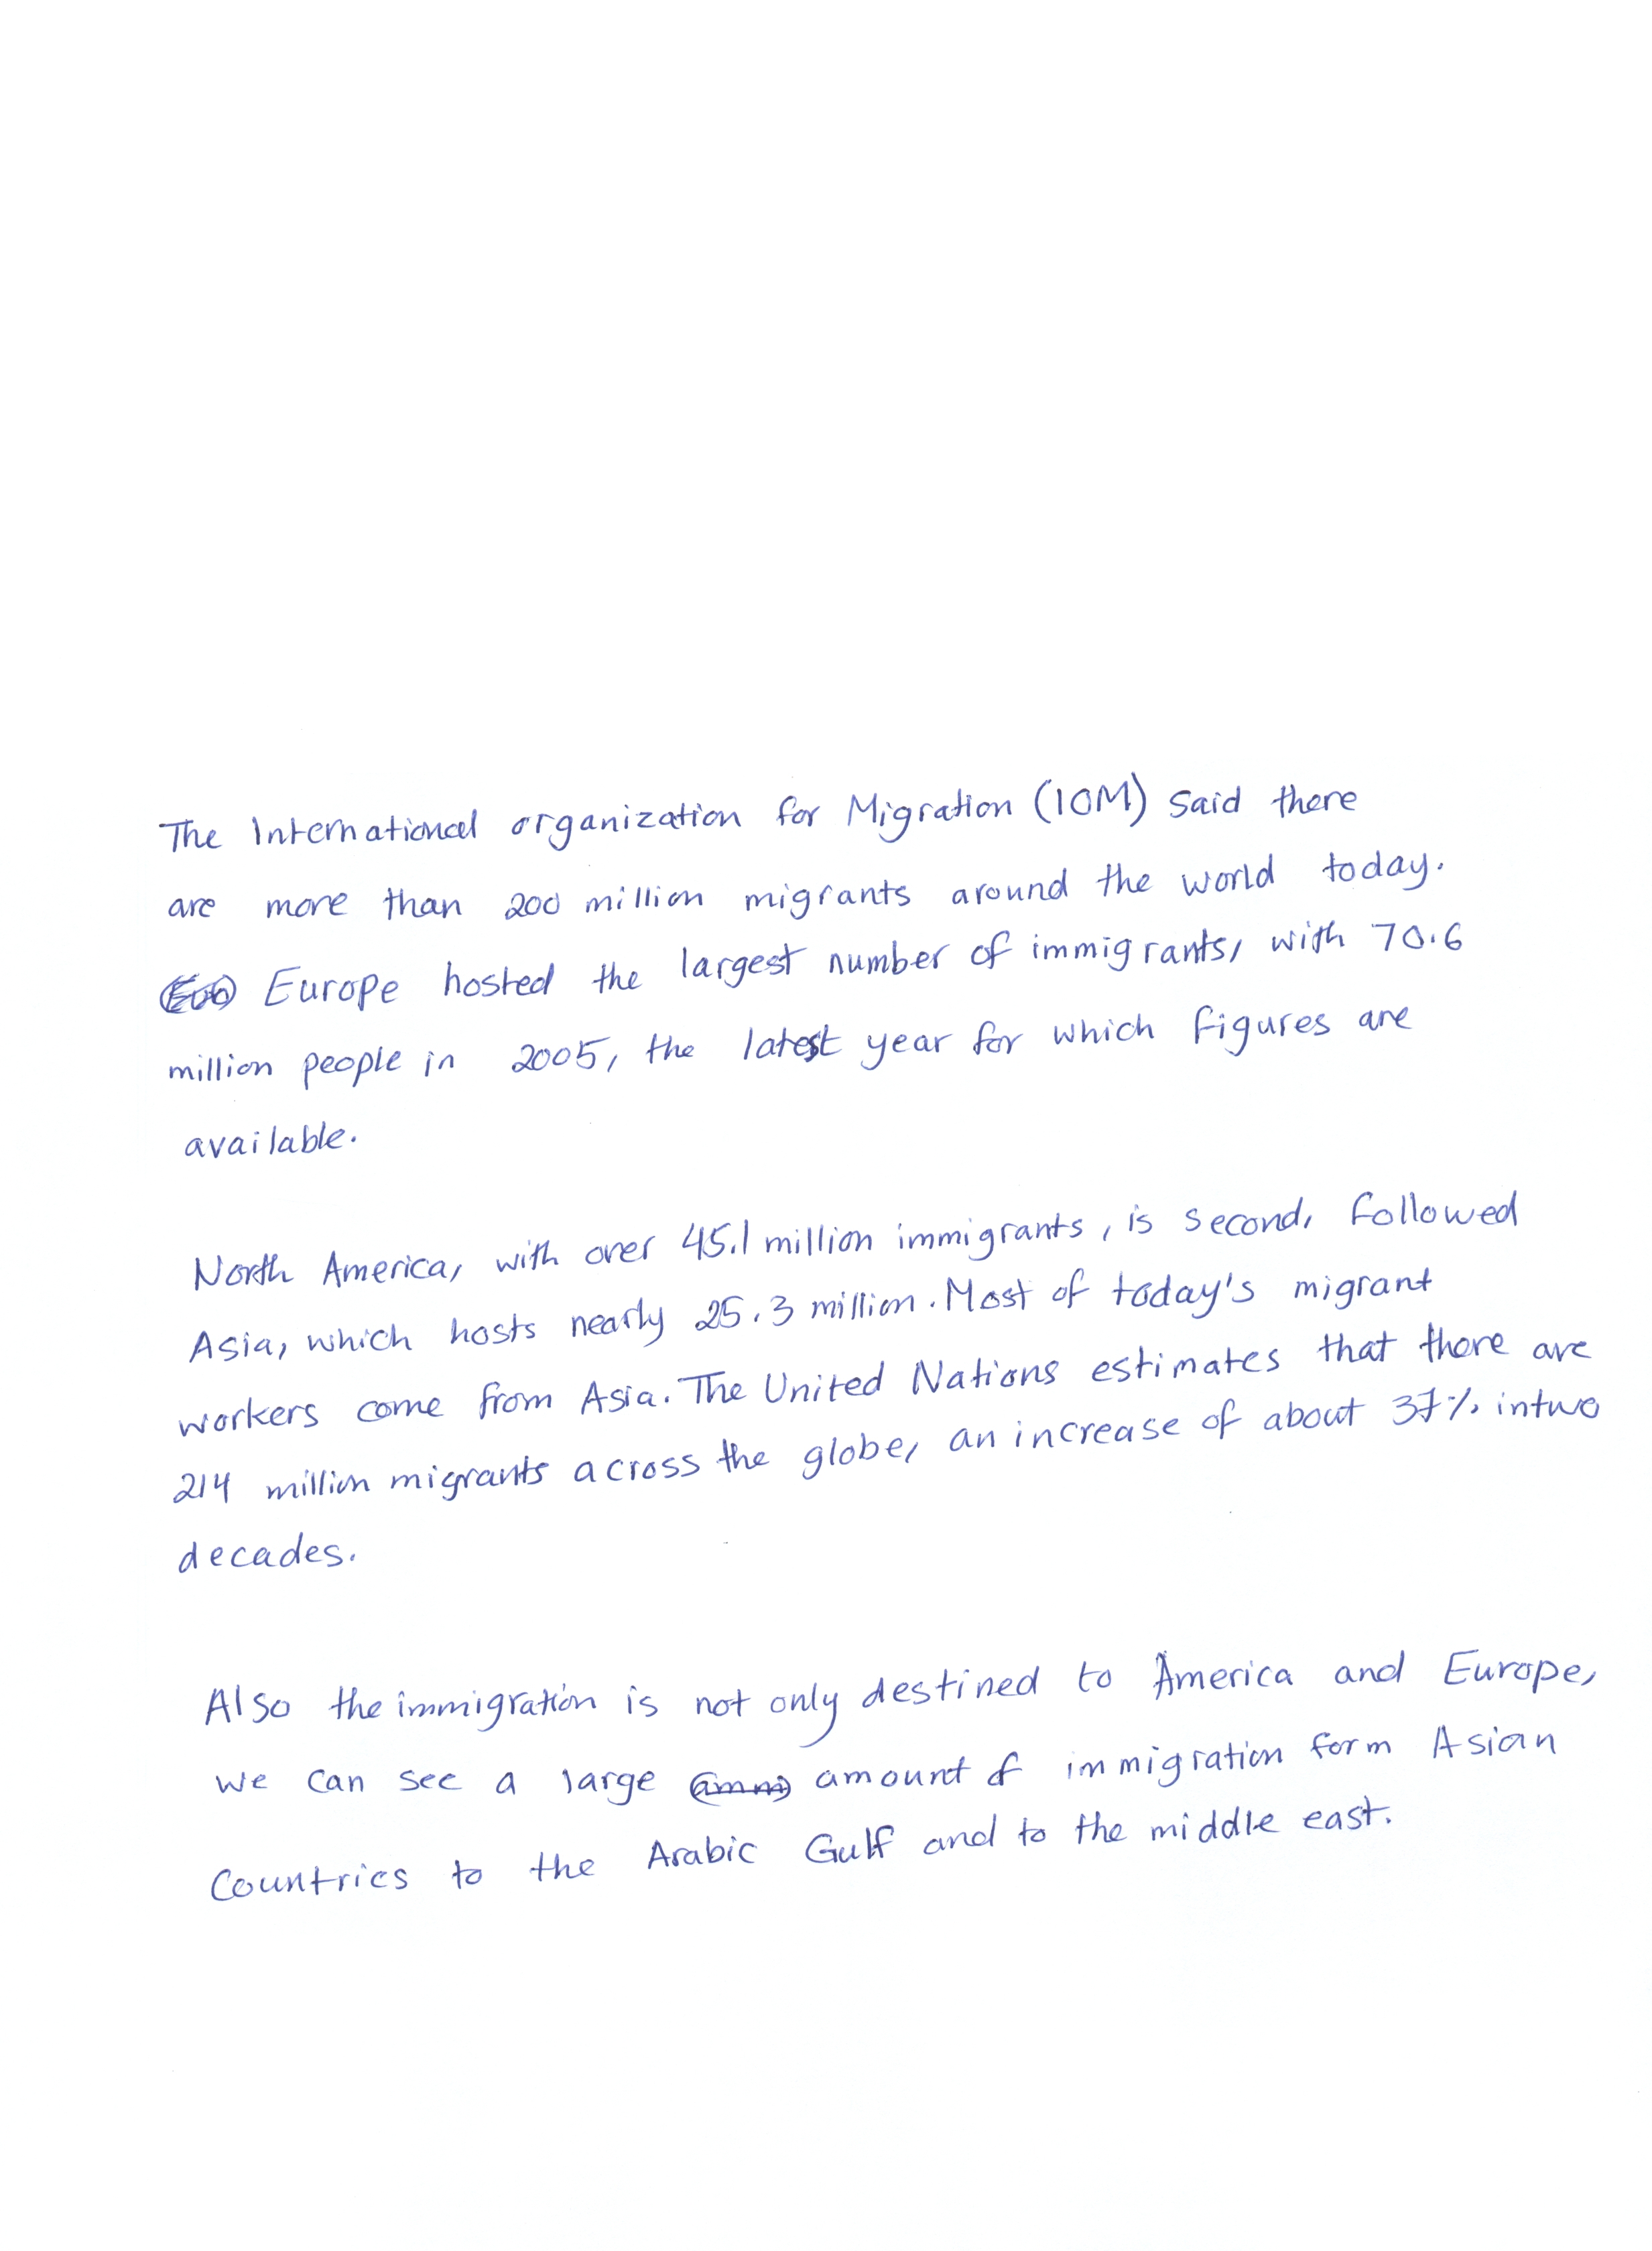 The International organization for Migration (IOM) said there
are more than 200 million migrants around the world today.
Europe hosted the largest number of immigrants, with 70.6
million people in 2005, the latest year for which figures are
available.
North America, with over 45.1 million immigrants, is second, followed
Asia, which hosts nearly 25.3 million. Most of today's migrant
workers come from Asia. The United Nations estimates that there are
214 million migrants across the globe, an increase of about 37% intwo
decades.
Also the immigration is not only destined to America and Europe,
we can see a large amount of immigration form Asian
Countries to the Arabic Gulf and to the middle east.